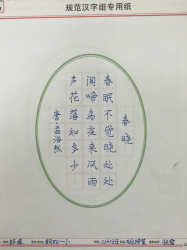 规范汉字组专用纸
春晓
春眠不觉晓处处
闻啼鸟夜来风雨
声花落知多少
唐·孟浩然